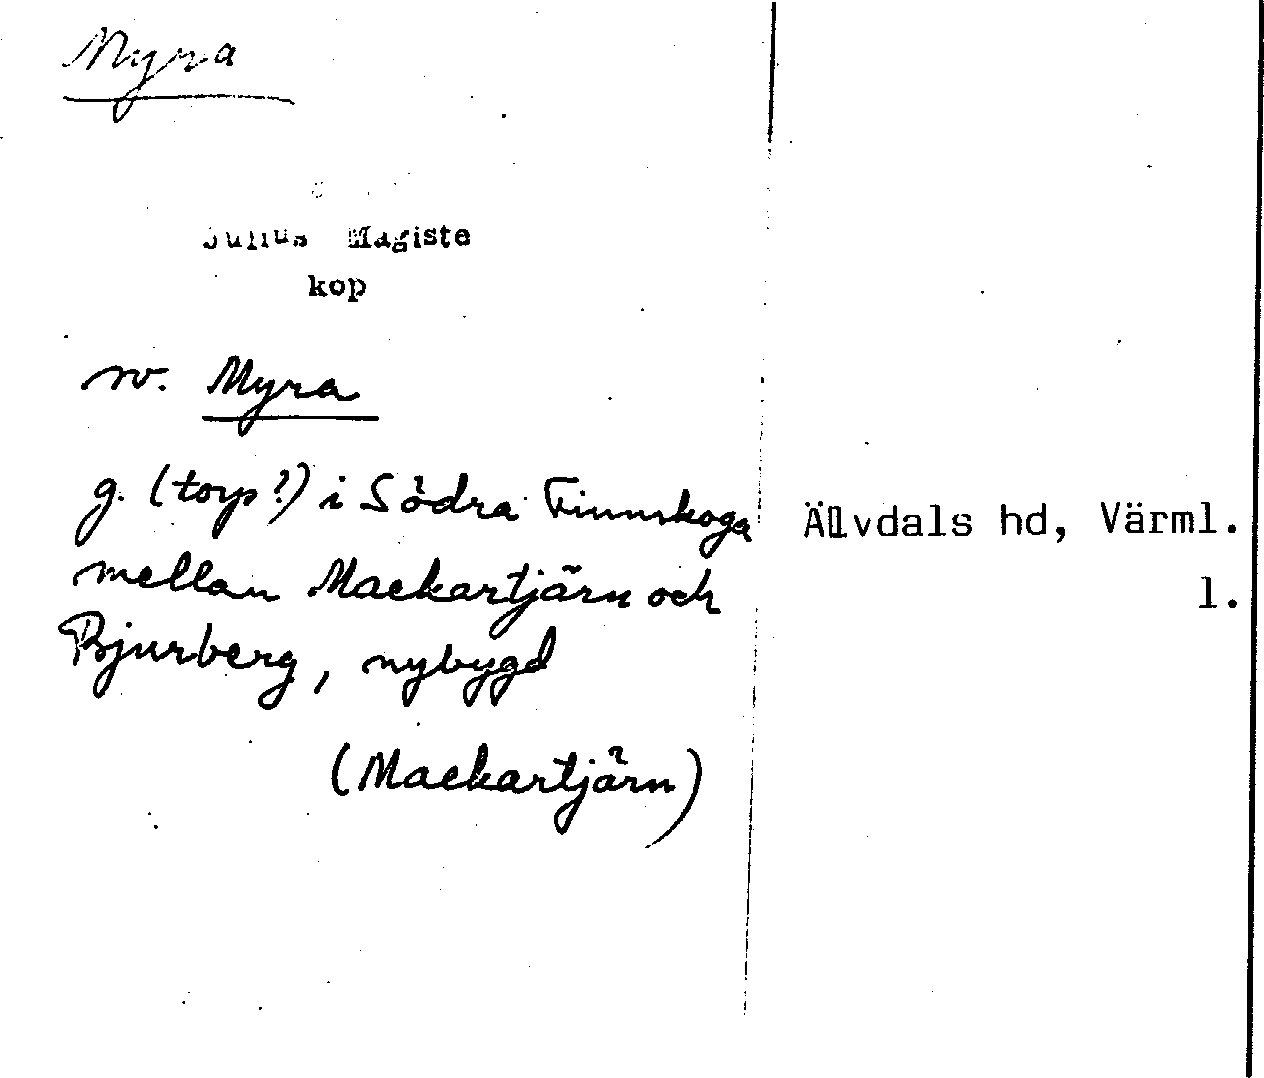 Myra
Julius Magiste
kop
rv. Myra
g. (torp?) i Södra Finnskoga
mellan Mackartjärn och
Bjurberg, nybygd
(Mackartjärn)
Älvdals hd, Värml.
l.